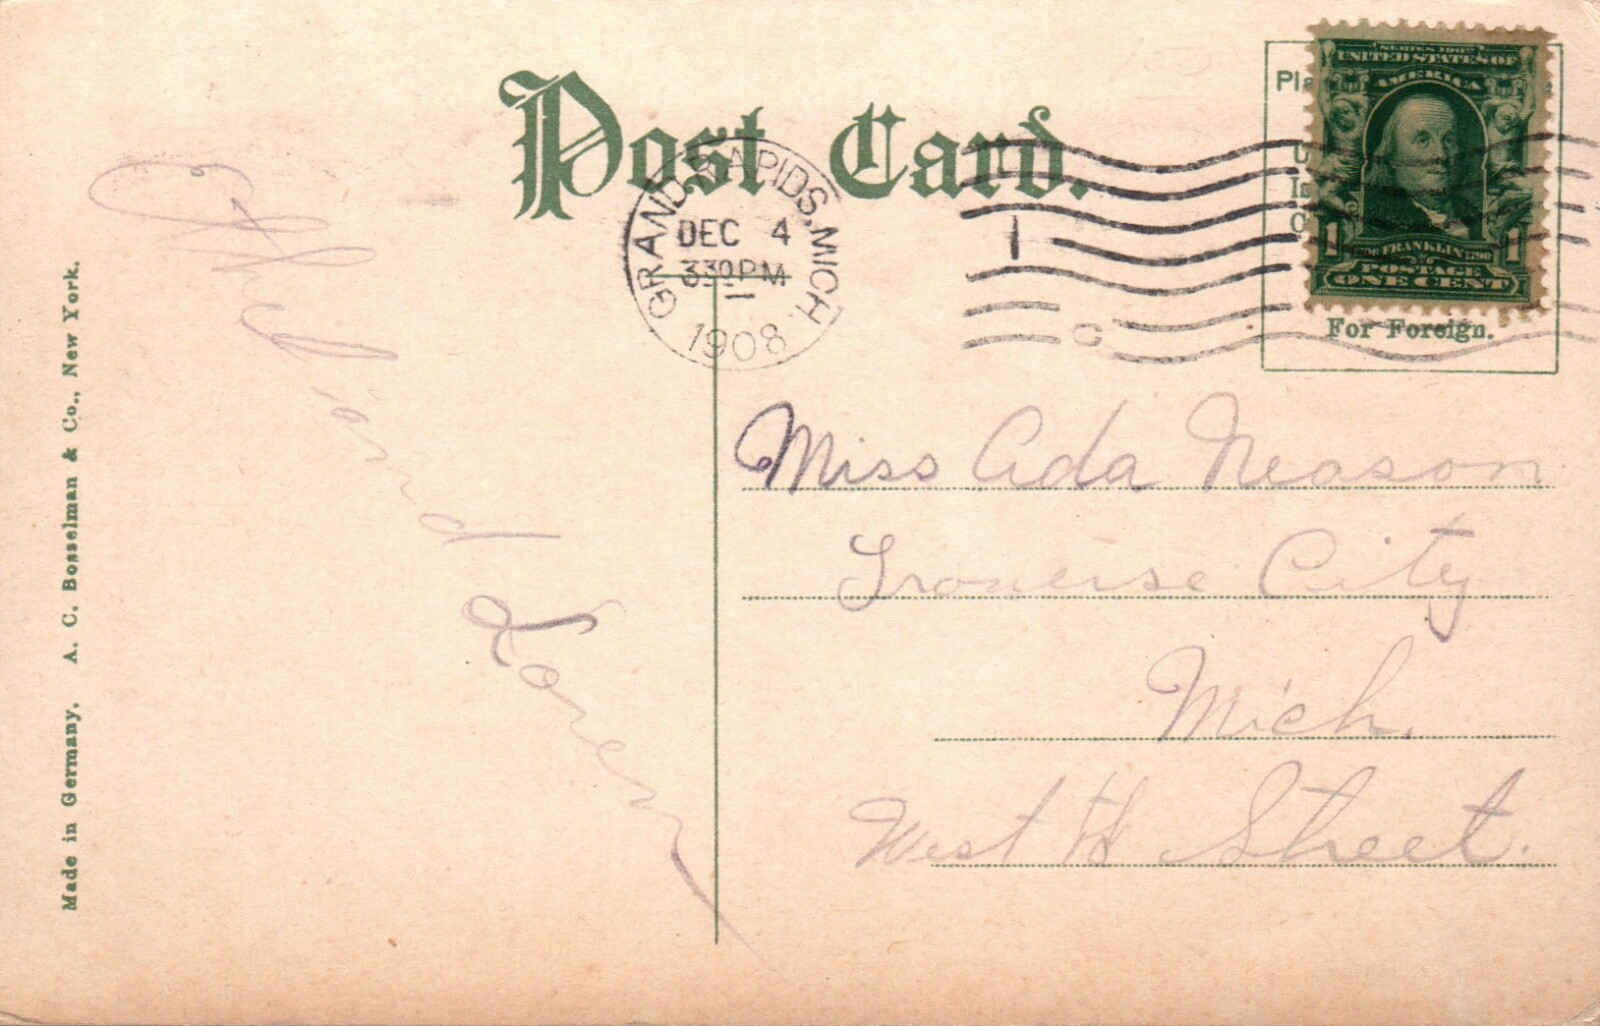 Post Card.
GRAND RAPIDS, MICH.
DEC 4
3 30 PM
1908
1
C
SERIES 1902
UNITED STATES OF
AMERICA
1 FRANKLIN 1790 1
POSTAGE
ONE CENT
For Foreign.
Miss Ada Neason
Traverse City
Mich.
West H Street.
Friend Loren
Made in Germany. A. C. Bosselman & Co., New York.